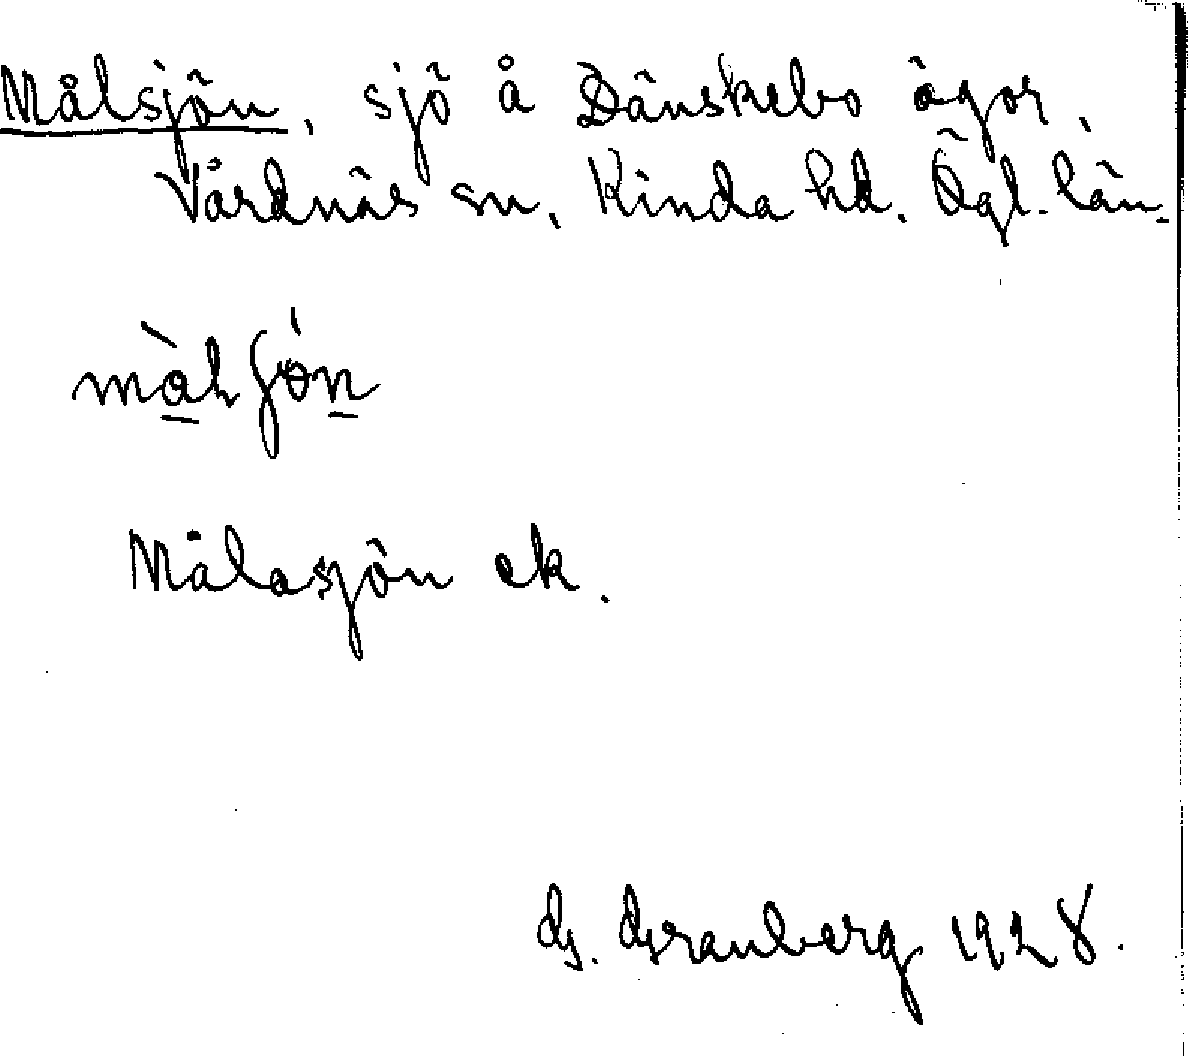 Målsjön, sjö å Dänskebo ägor,
Vårdnäs sn, Kinda hd. Ögl. län.
Målasjön ek.
G. Granberg 1928.